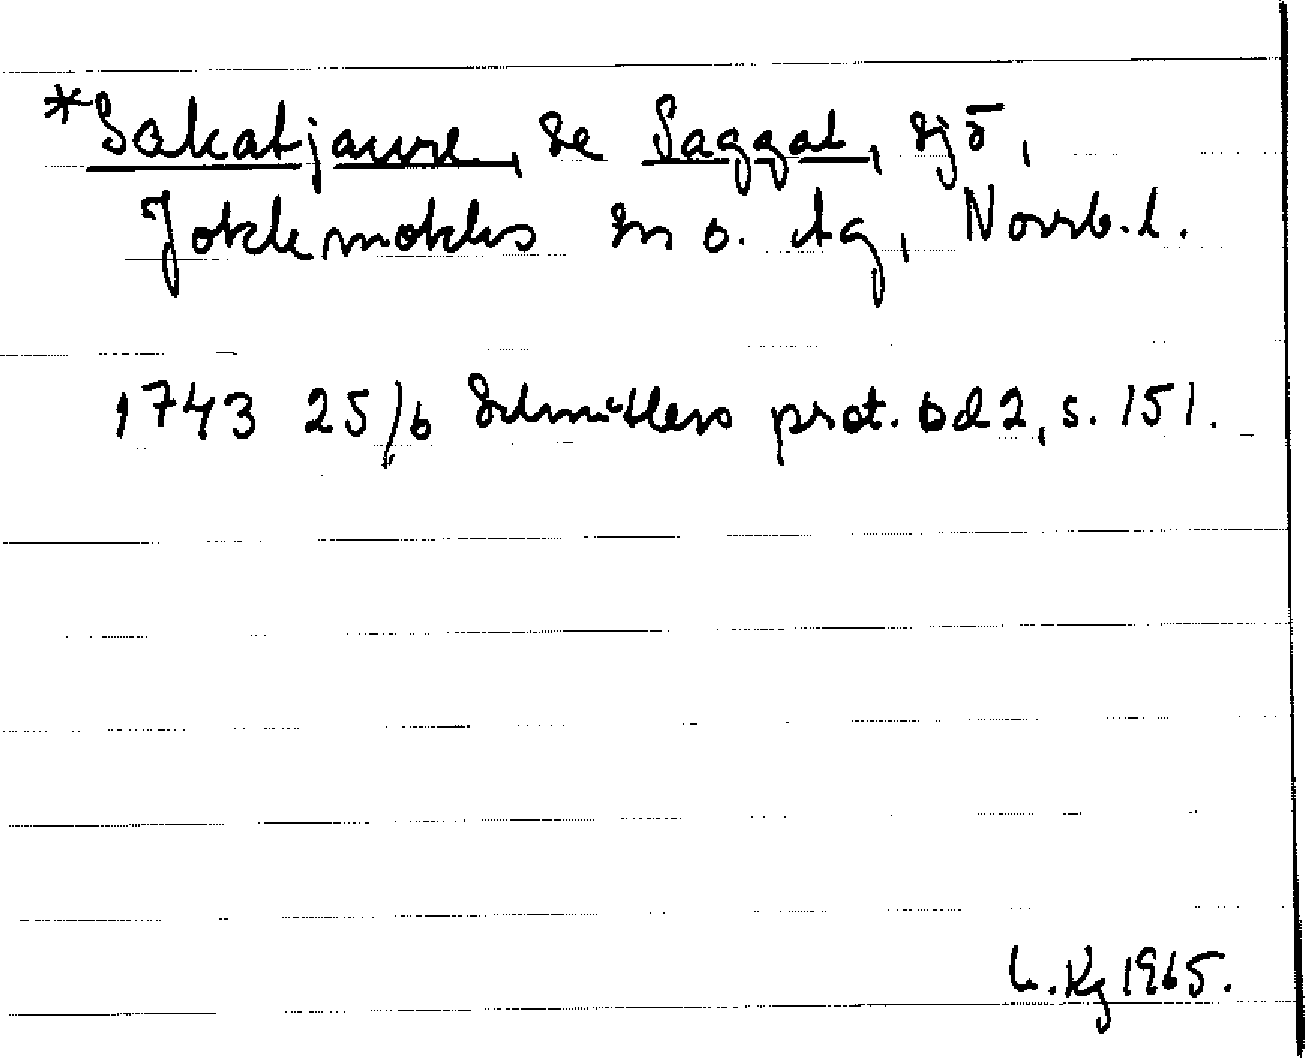 *Sakatjaure, se Saggat, sjö,
Jokkmokks sn o. tg, Norrb.l.
1743 25/6 Schnitlers prot. bd 2, s. 151.
L. Kg 1965.